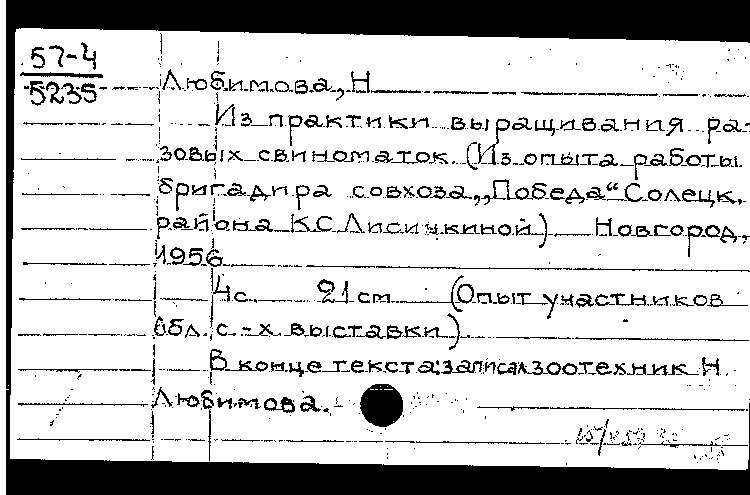 57-4
5235
Любимова, Н
Из практики выращивания ра-
зовых свиноматок. (Из опыта работы
бригадира совхоза „Победа“ Солецк.
района К.С Лисичкиной). Новгород,
1956
4с. 21 cm (Опыт участников
обл. с.-х выставки).
В конце текста: записал зоотехник Н.
Любимова.